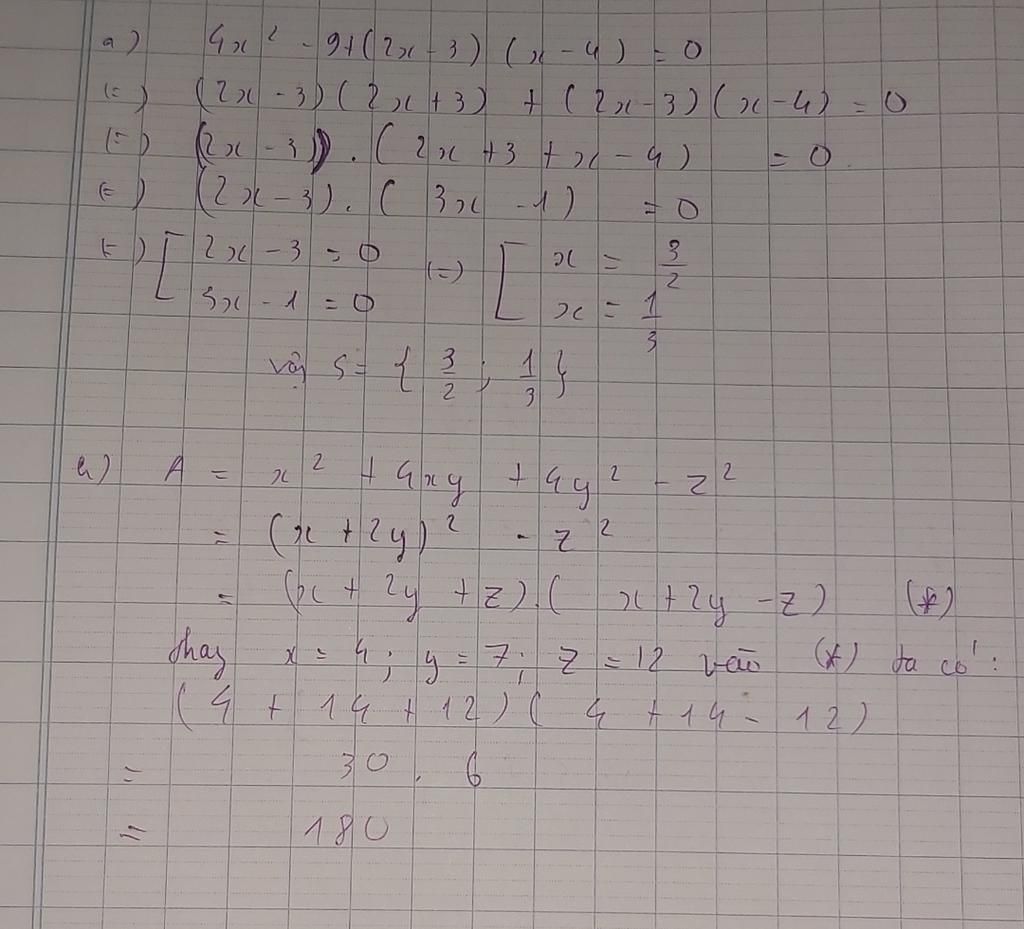 a) 4x² - 9 + (2x - 3) (x - 4) = 0
(=) (2x - 3) (2x + 3) + (2x - 3) (x - 4) = 0
(=) (2x - 3) . (2x + 3 + x - 4) = 0
(=) (2x - 3) . (3x - 1) = 0
(=) [ 2x - 3 = 0 (=) [ x = 3/2
3x - 1 = 0 x = 1/3
Vậy S = { 3/2 ; 1/3 }
b) A = x² + 4xy + 4y² - z²
= (x + 2y)² - z²
= (x + 2y + z) . (x + 2y - z) (*)
Thay x = 4; y = 7; z = 12 vào (*) ta có:
(4 + 14 + 12) (4 + 14 - 12)
= 30 . 6
= 180